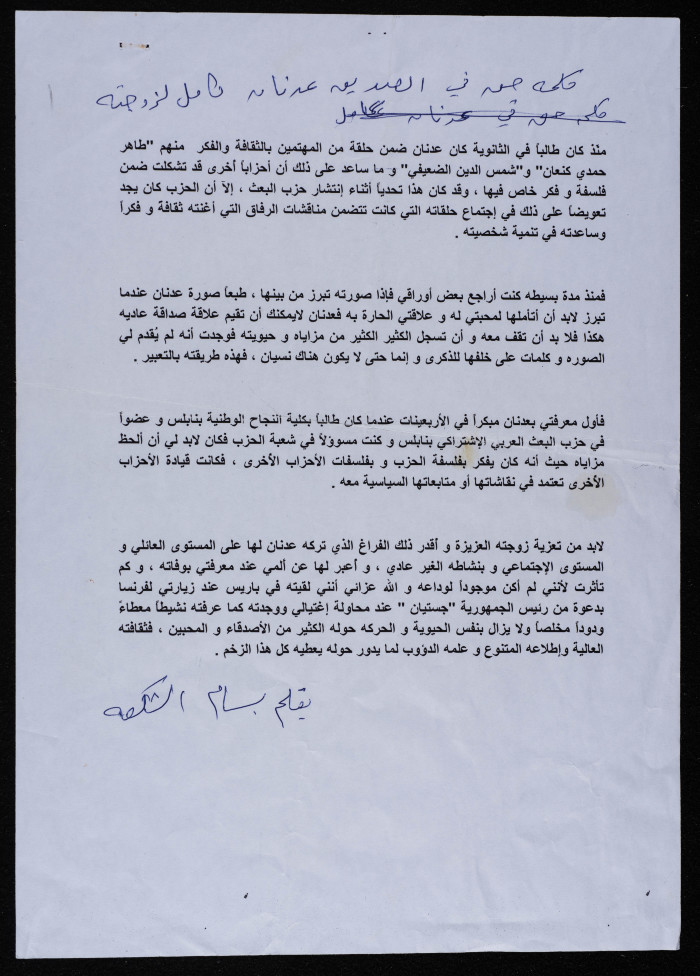 كلمة حق في الصديق عدنان كامل لزوجته
كلمة حق في عدنان كامل
منذ كان طالباً في الثانوية كان عدنان ضمن حلقة من المهتمين بالثقافة والفكر منهم "طاهر
حمدي كنعان" و"شمس الدين الضعيفي" و ما ساعد على ذلك أن أحزاباً أخرى قد تشكلت ضمن
فلسفة و فكر خاص فيها ، وقد كان هذا تحدياً أثناء إنتشار حزب البعث ، إلاّ أن الحزب كان يجد
تعويضاً على ذلك في إجتماع حلقاته التي كانت تتضمن مناقشات الرفاق التي أغنته ثقافة و فكراً
وساعدته في تنمية شخصيته .
فمنذ مدة بسيطه كنت أراجع بعض أوراقي فإذا صورته تبرز من بينها ، طبعاً صورة عدنان عندما
تبرز لابد أن أتأملها لمحبتي له و علاقتي الحارة به فعدنان لايمكنك أن تقيم علاقة صداقة عاديه
هكذا فلا بد أن تقف معه و أن تسجل الكثير الكثير من مزاياه و حيويته فوجدت أنه لم يُقدم لي
الصوره و كلمات على خلفها للذكرى و إنما حتى لا يكون هناك نسيان ، فهذه طريقته بالتعبير .
فأول معرفتي بعدنان مبكراً في الأربعينات عندما كان طالباً بكلية النجاح الوطنية بنابلس و عضواً
في حزب البعث العربي الإشتراكي بنابلس و كنت مسوؤلاً في شعبة الحزب فكان لابد لي أن ألحظ
مزاياه حيث أنه كان يفكر بفلسفة الحزب و بفلسفات الأحزاب الأخرى ، فكانت قيادة الأحزاب
الأخرى تعتمد في نقاشاتها أو متابعاتها السياسية معه .
لابد من تعزية زوجته العزيزة و أقدر ذلك الفراغ الذي تركه عدنان لها على المستوى العائلي و
المستوى الإجتماعي و بنشاطه الغير عادي ، و أعبر لها عن ألمي عند معرفتي بوفاته ، و كم
تأثرت لأنني لم أكن موجوداً لوداعه و الله عزائي أنني لقيته في باريس عند زيارتي لفرنسا
بدعوة من رئيس الجمهورية "جستيان " عند محاولة إغتيالي ووجدته كما عرفته نشيطاً معطاءً
ودوداً مخلصاً ولا يزال بنفس الحيوية و الحركه حوله الكثير من الأصدقاء و المحبين ، فثقافته
العالية وإطلاعه المتنوع و علمه الدؤوب لما يدور حوله يعطيه كل هذا الزخم .
بقلم بسام الشكعه